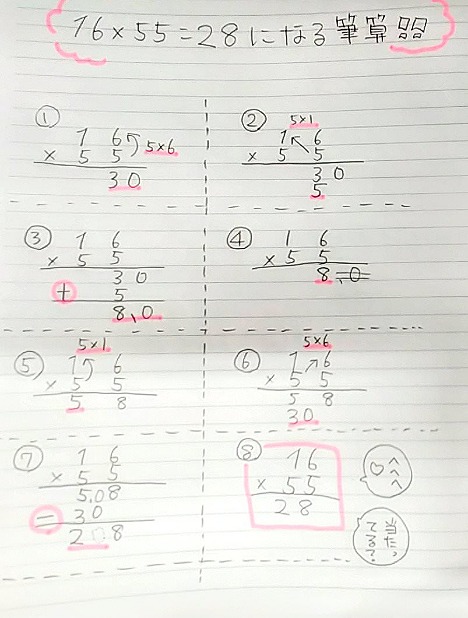 16×55=28になる筆算
① 5×6
1 6
× 5 5
3 0
② 5×1
1 6
× 5 5
3 0
5
③
1 6
× 5 5
3 0
+ 5
8、0
④
1 6
× 5 5
8、0
⑤ 5×1
1 6
× 5 5
5 8
⑥ 5×6
1 6
× 5 5
5 8
3 0
⑦
1 6
× 5 5
5.08
= 30
2 0 8
⑧
16
× 55
28
当たってる?